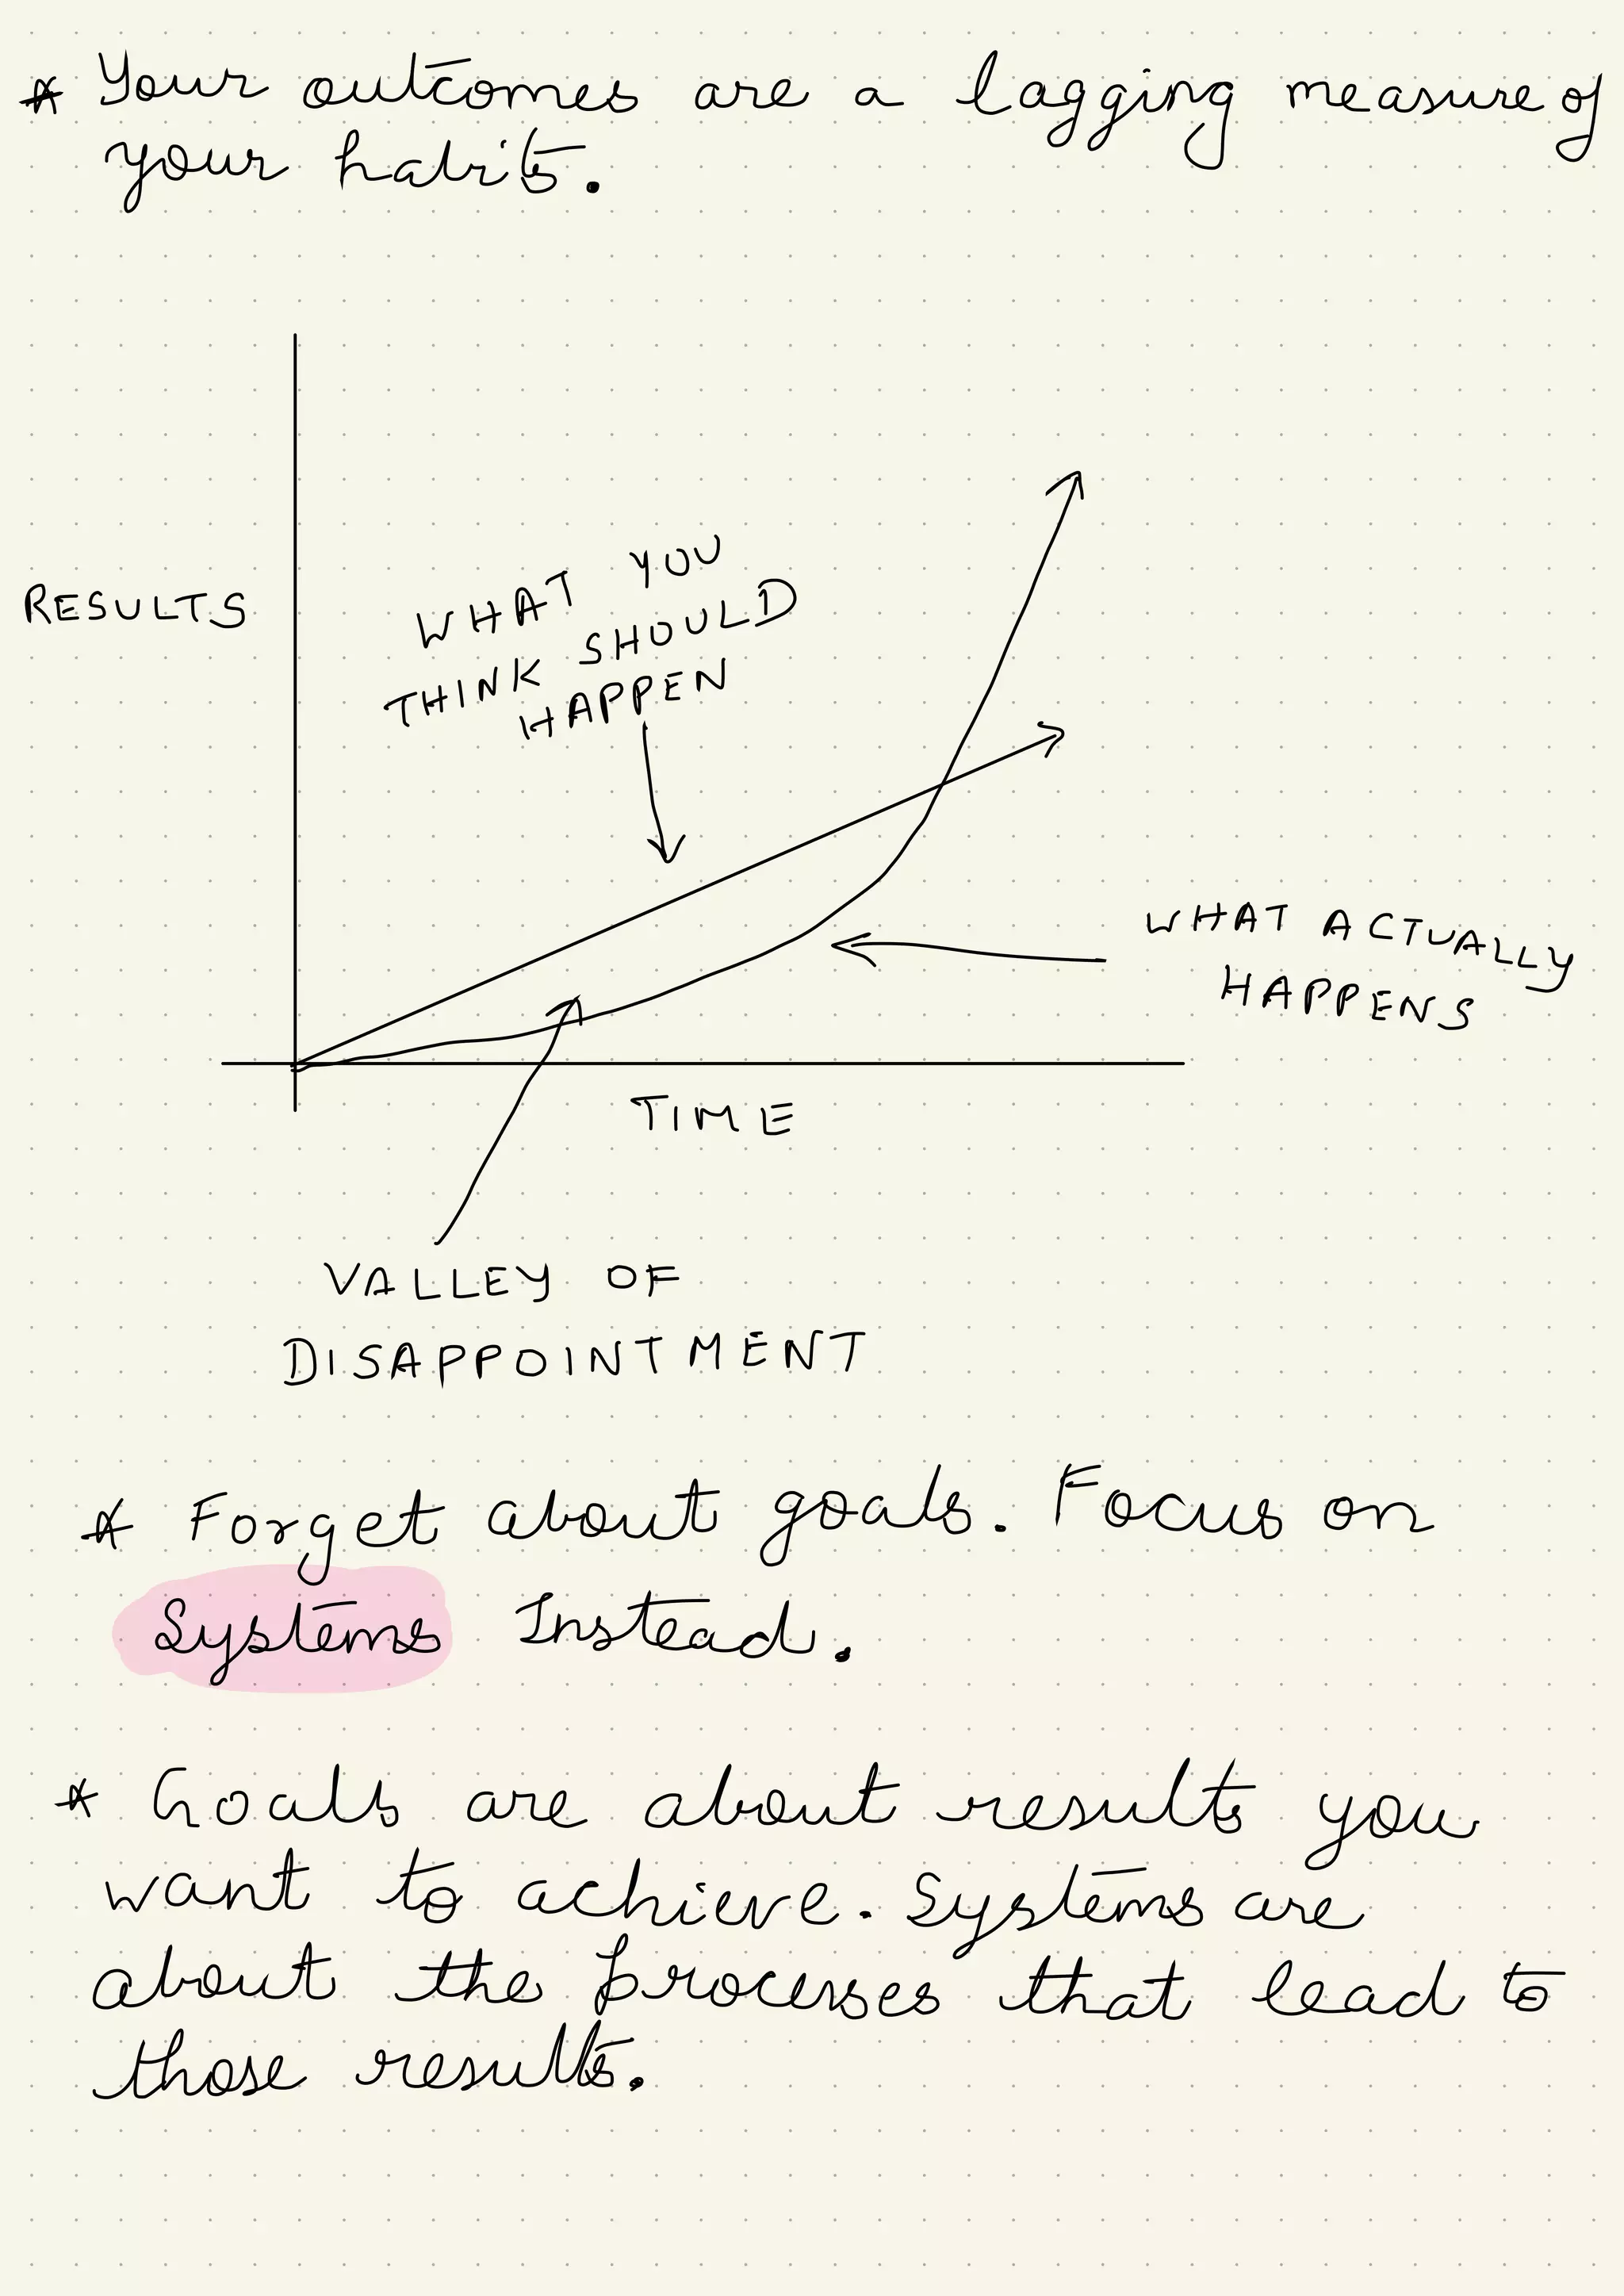 * Your outcomes are a lagging measure of
your habits.
WHAT YOU
THINK SHOULD
HAPPEN
RESULTS
WHAT ACTUALLY
HAPPENS
TIME
VALLEY OF
DISAPPOINTMENT
* Forget about goals. Focus on
Systems Instead.
* Goals are about results you
want to achieve. Systems are
about the processes that lead to
those results.